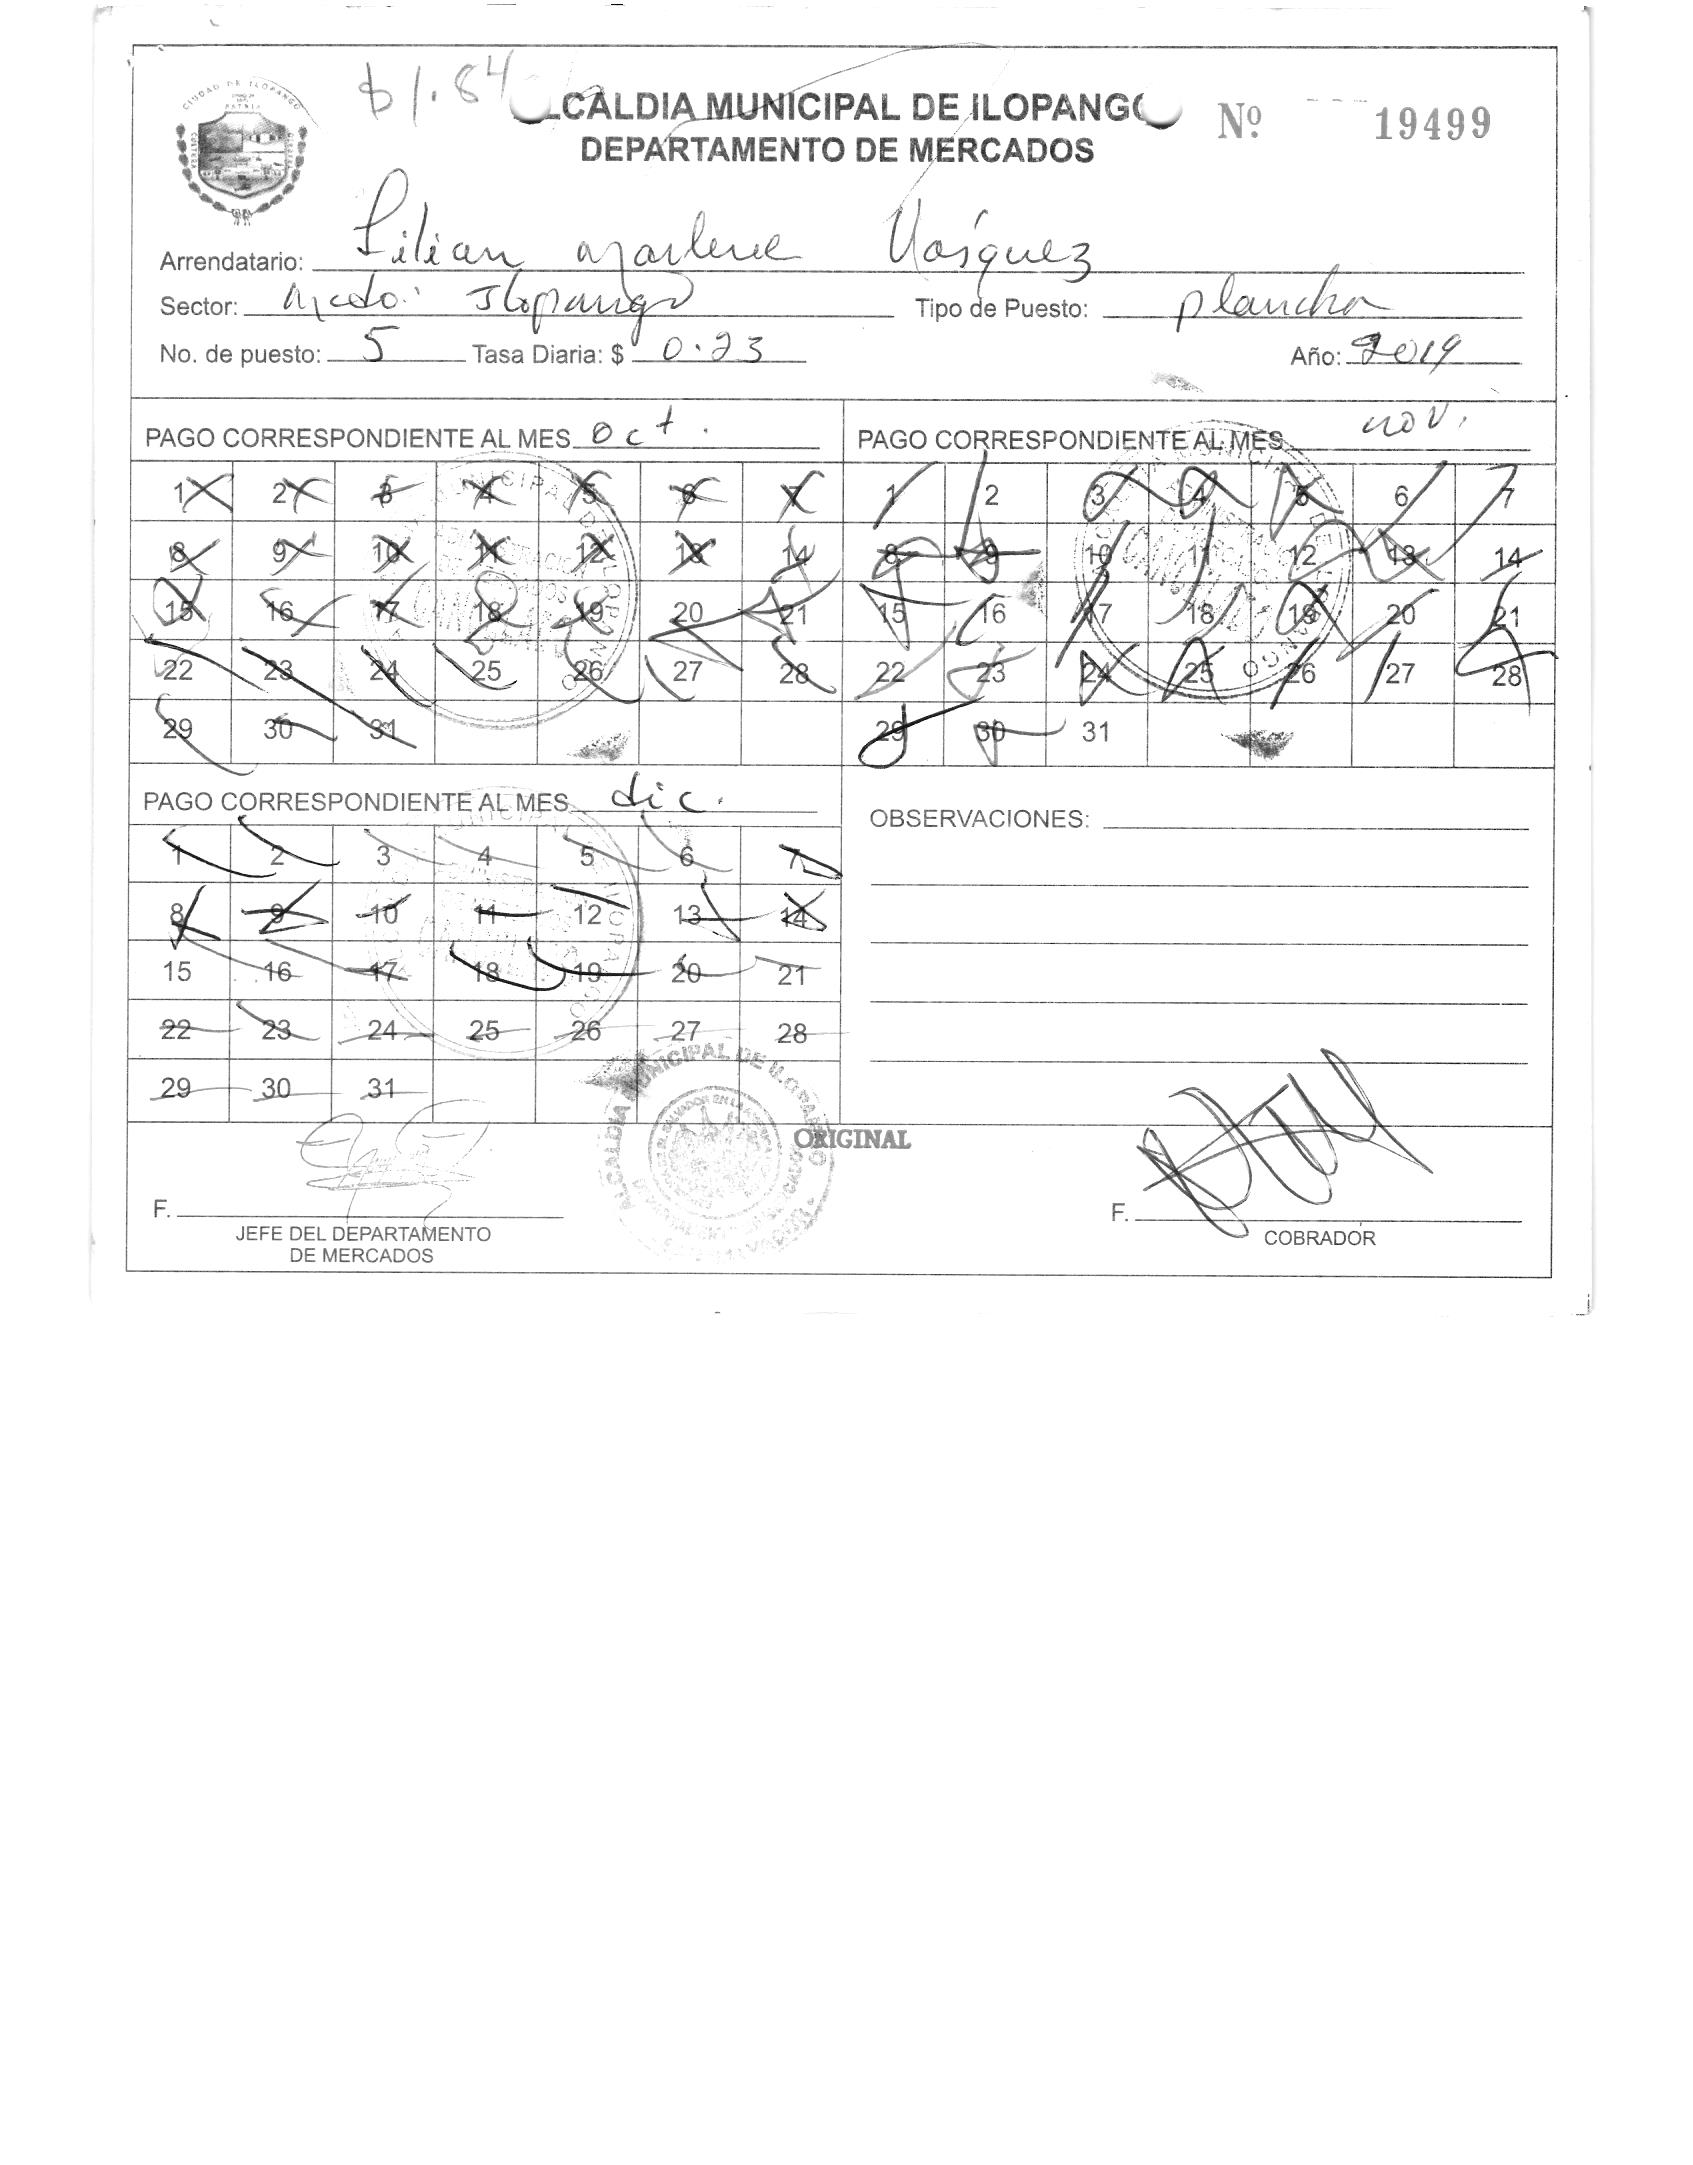 $1.84
CIUDAD DE ILOPANGO
LCALDIA MUNICIPAL DE ILOPANGO
Nº 19499
DEPARTAMENTO DE MERCADOS
Arrendatario: Lilian Marlene Vasquez
Sector: Mcdo. Ilopango Tipo de Puesto: plancha
No. de puesto: 5 Tasa Diaria: $ 0.23 Año: 2019
PAGO CORRESPONDIENTE AL MES oct.
1 2 3 4 5 6 7
8 9 10 11 12 13 14
15 16 17 18 19 20 21
22 23 24 25 26 27 28
29 30 31
PAGO CORRESPONDIENTE AL MES nov.
1 2 3 4 5 6 7
8 9 10 11 12 13 14
15 16 17 18 19 20 21
22 23 24 25 26 27 28
29 30 31
PAGO CORRESPONDIENTE AL MES dic.
1 2 3 4 5 6 7
8 9 10 11 12 13 14
15 16 17 18 19 20 21
22 23 24 25 26 27 28
29 30 31
OBSERVACIONES:
ALCALDIA MUNICIPAL DE ILOPANGO
ORIGINAL
F.
JEFE DEL DEPARTAMENTO
DE MERCADOS
F.
COBRADOR